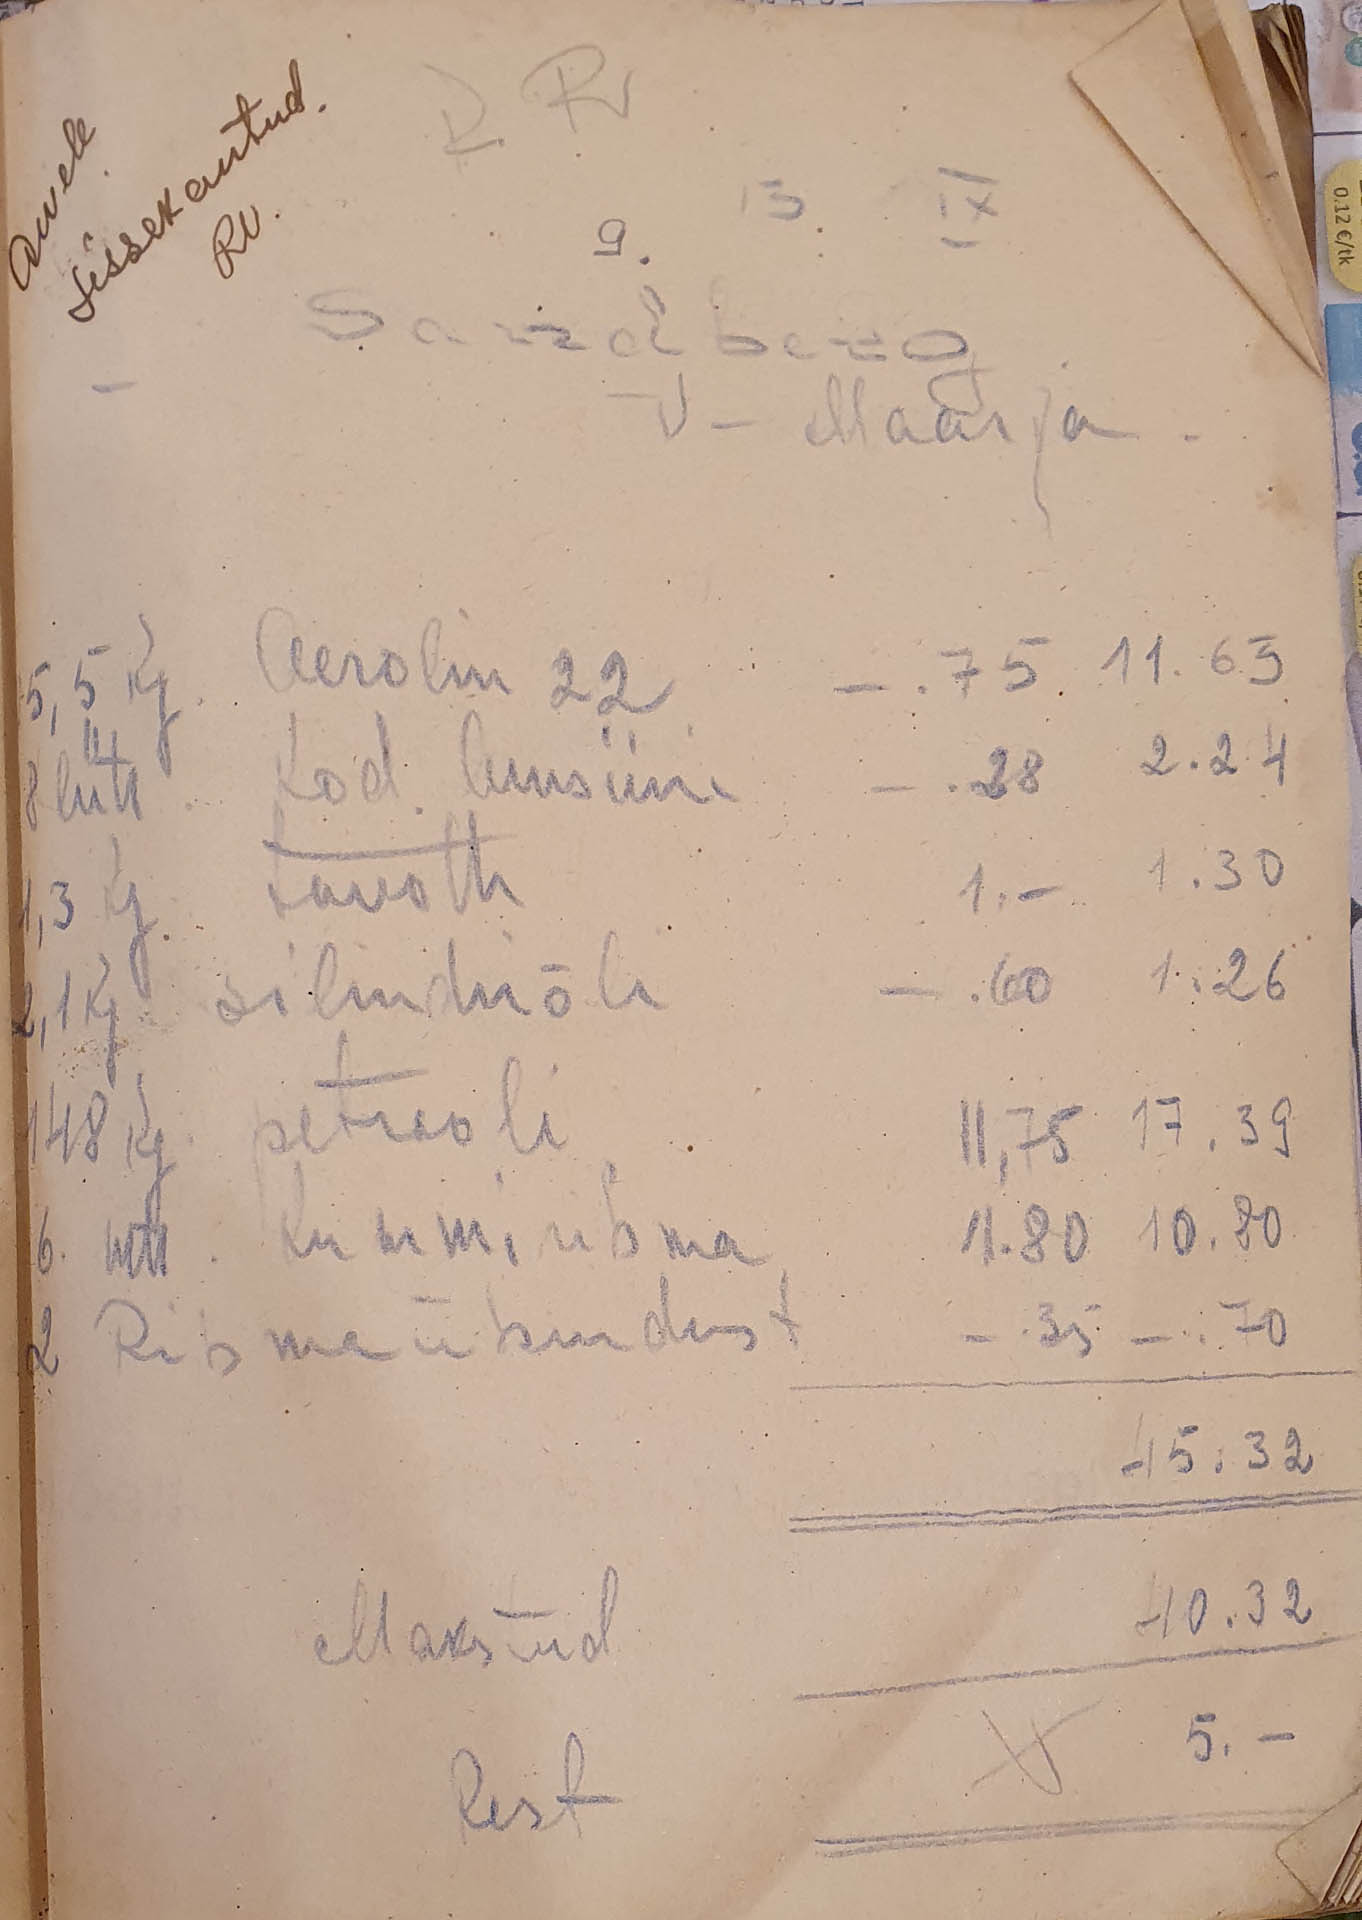 arvele
sissekantud.
Rv.
R Rv
13. IX
9.
Sandberg
V-Maarja.
5,5 kg. Aerolin 22 -.75. 11.63
8 liitr. Kod. bensiini -.28 2.24
1,3 kg. tavott 1.- 1.30
2,1 kg silindriõli -.60 1.26
148 kg. petrooli 11,75 17.39
6. mtr. Kummi rihma 1.80 10.80
2 Rihmaühendust -.35 -.70
45.32
Makstud 40.32
Rest 5.-
0.12 €/tk